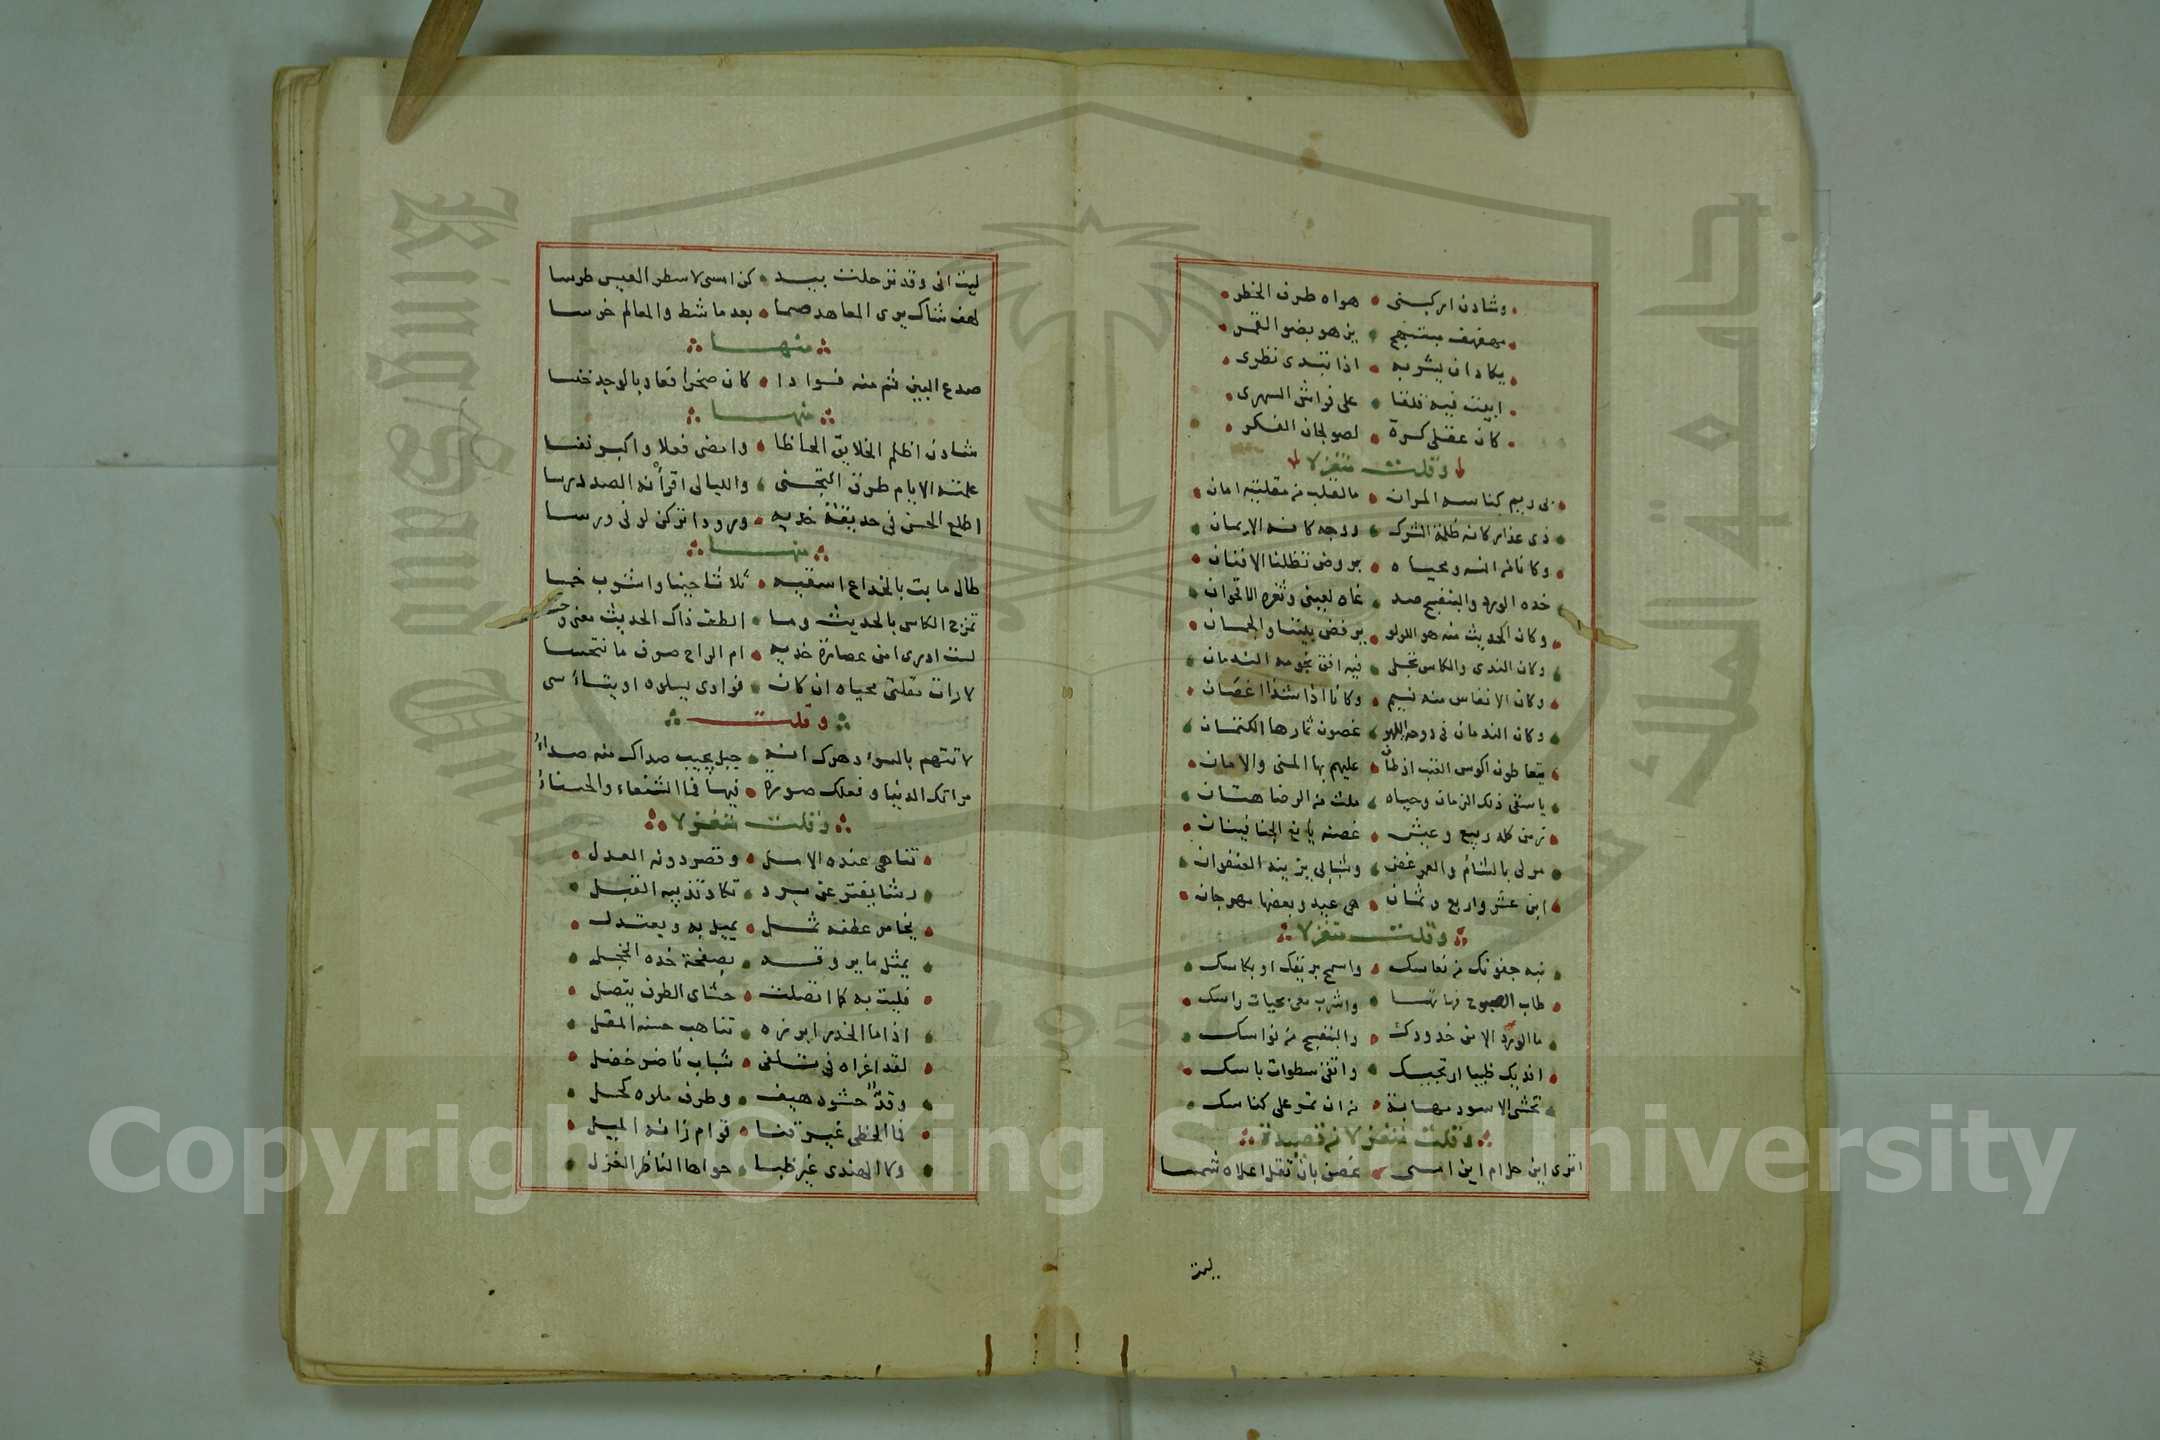 وشادن اركبنى هواه طرف الخطر
مهفهف مبتهج يزهو بضو القمر
يكاد ان يشربه اذا تبدى نظرى
ابيت فيه قلقا على فراش السهرى
كان عقلى كرة لصولجان الفكر
وقلت متغزلا
بى ريم كناسه المران ما لقلب من مقلتيه امان
ذى عذار كانه ظلمة الشرك ووجه كانه الايمان
وكانا من انسه ومحياه بروض تظلنا الافنان
خده الورد والبنفسج صدغاه لعينى وثغره الاقحوان
وكان الحديث منه هو اللولو يرفض بيننا والجمان
وكان الندى والكاس تجلى فيه افق نجومه الندمان
وكان الانفاس منه نسيم وكانا اذا شدا اغصان
وكان الندمان فى دوحة اللهو غصون ثمارها الكتمان
يتعاطون اكوس العتب اذ طافت عليهم بها المنى والامان
يا سقى ذلك الزمان وحياه ملث من الرضا هتان
زمن كله ربيع وعيش غصنه يانع الجنا فينان
مر لى بالشام والعمر غض وشبابى يزينه العنفوان
ابن عشر واربع وثمان هى عيد وبعضها مهرجان
وقلت متغزلا
نبه جفونك من نعاسك واسمح بريقك او بكاسك
طاب الصبوح فهاتها واشرب معى بحيات راسك
ما الورد الا من خدودك والبنفسج من نواسك
افديك ظبيا ارتجيك واتقى سطوات باسك
تخشى الاسود مهابة من ان تمر على كناسك
وقلت متغزلا من قصيدة
اترى اين حل ام اين امسى غصن بان تقل اعلاه شمسا
ليت
ليت انى وقد ترحلت ببيد كن امسى لاسطر العيس طرسا
لهف شاك يرى المعاهد صما بعد ما شط والمعالم خرسا
منها
صدع البين ثم منه فوادا كان صخرا فعاد بالوجد خنسا
منها
شادن اظلم الخلايق الحاظا وامضى فعلا واكبر نفسا
علمته الايام طرق التجنى والليالى اقرأنه الصد درسا
اطلع الحسن فى حديقة خديه ورودا تركن لونى ورسا
منها
طال ما بت بالخداع اسقيه ثلاثا حينا واشرب خمسا
تمزج الكاس بالحديث وما الطف ذاك الحديث معنى وحسا
لست ادرى امن عصارة خديه ام الراح صرف ما نتحسا
لا رات مقلتى محياه ان كان فوادى يسلوه او يتناسى
وقلت
لا تتهم بالسوء دهرك انه جبل يجيب صداك منه صداء
مراتك الدنيا وفعلك صورة فيها فما الشنعاء والحسناء
وقلت متغزلا
تناهى عنده الامل وقصر دونه العذل
رشا يفتر عن برد تكاد تذيبه القبل
يخامر عطفه ثمل يميل به ويعتدل
يمثل ما يروقه بصفحة خده الخجل
فليت به كما اتصلت حشاى الطرف يتصل
اذا ما الخدر ابرزه تناهب حسنه المقل
لقد اغراه فى تلفى شباب ناضر خضل
وقد حشوه هيف وطرف ملوه كحل
فما الخطى غير قنا قوام زانه الميل
ولا الهندى غير ظبا حواها الناظر الغزل
King Saud University
جامعة الملك سعود
1957
Copyright © King Saud University